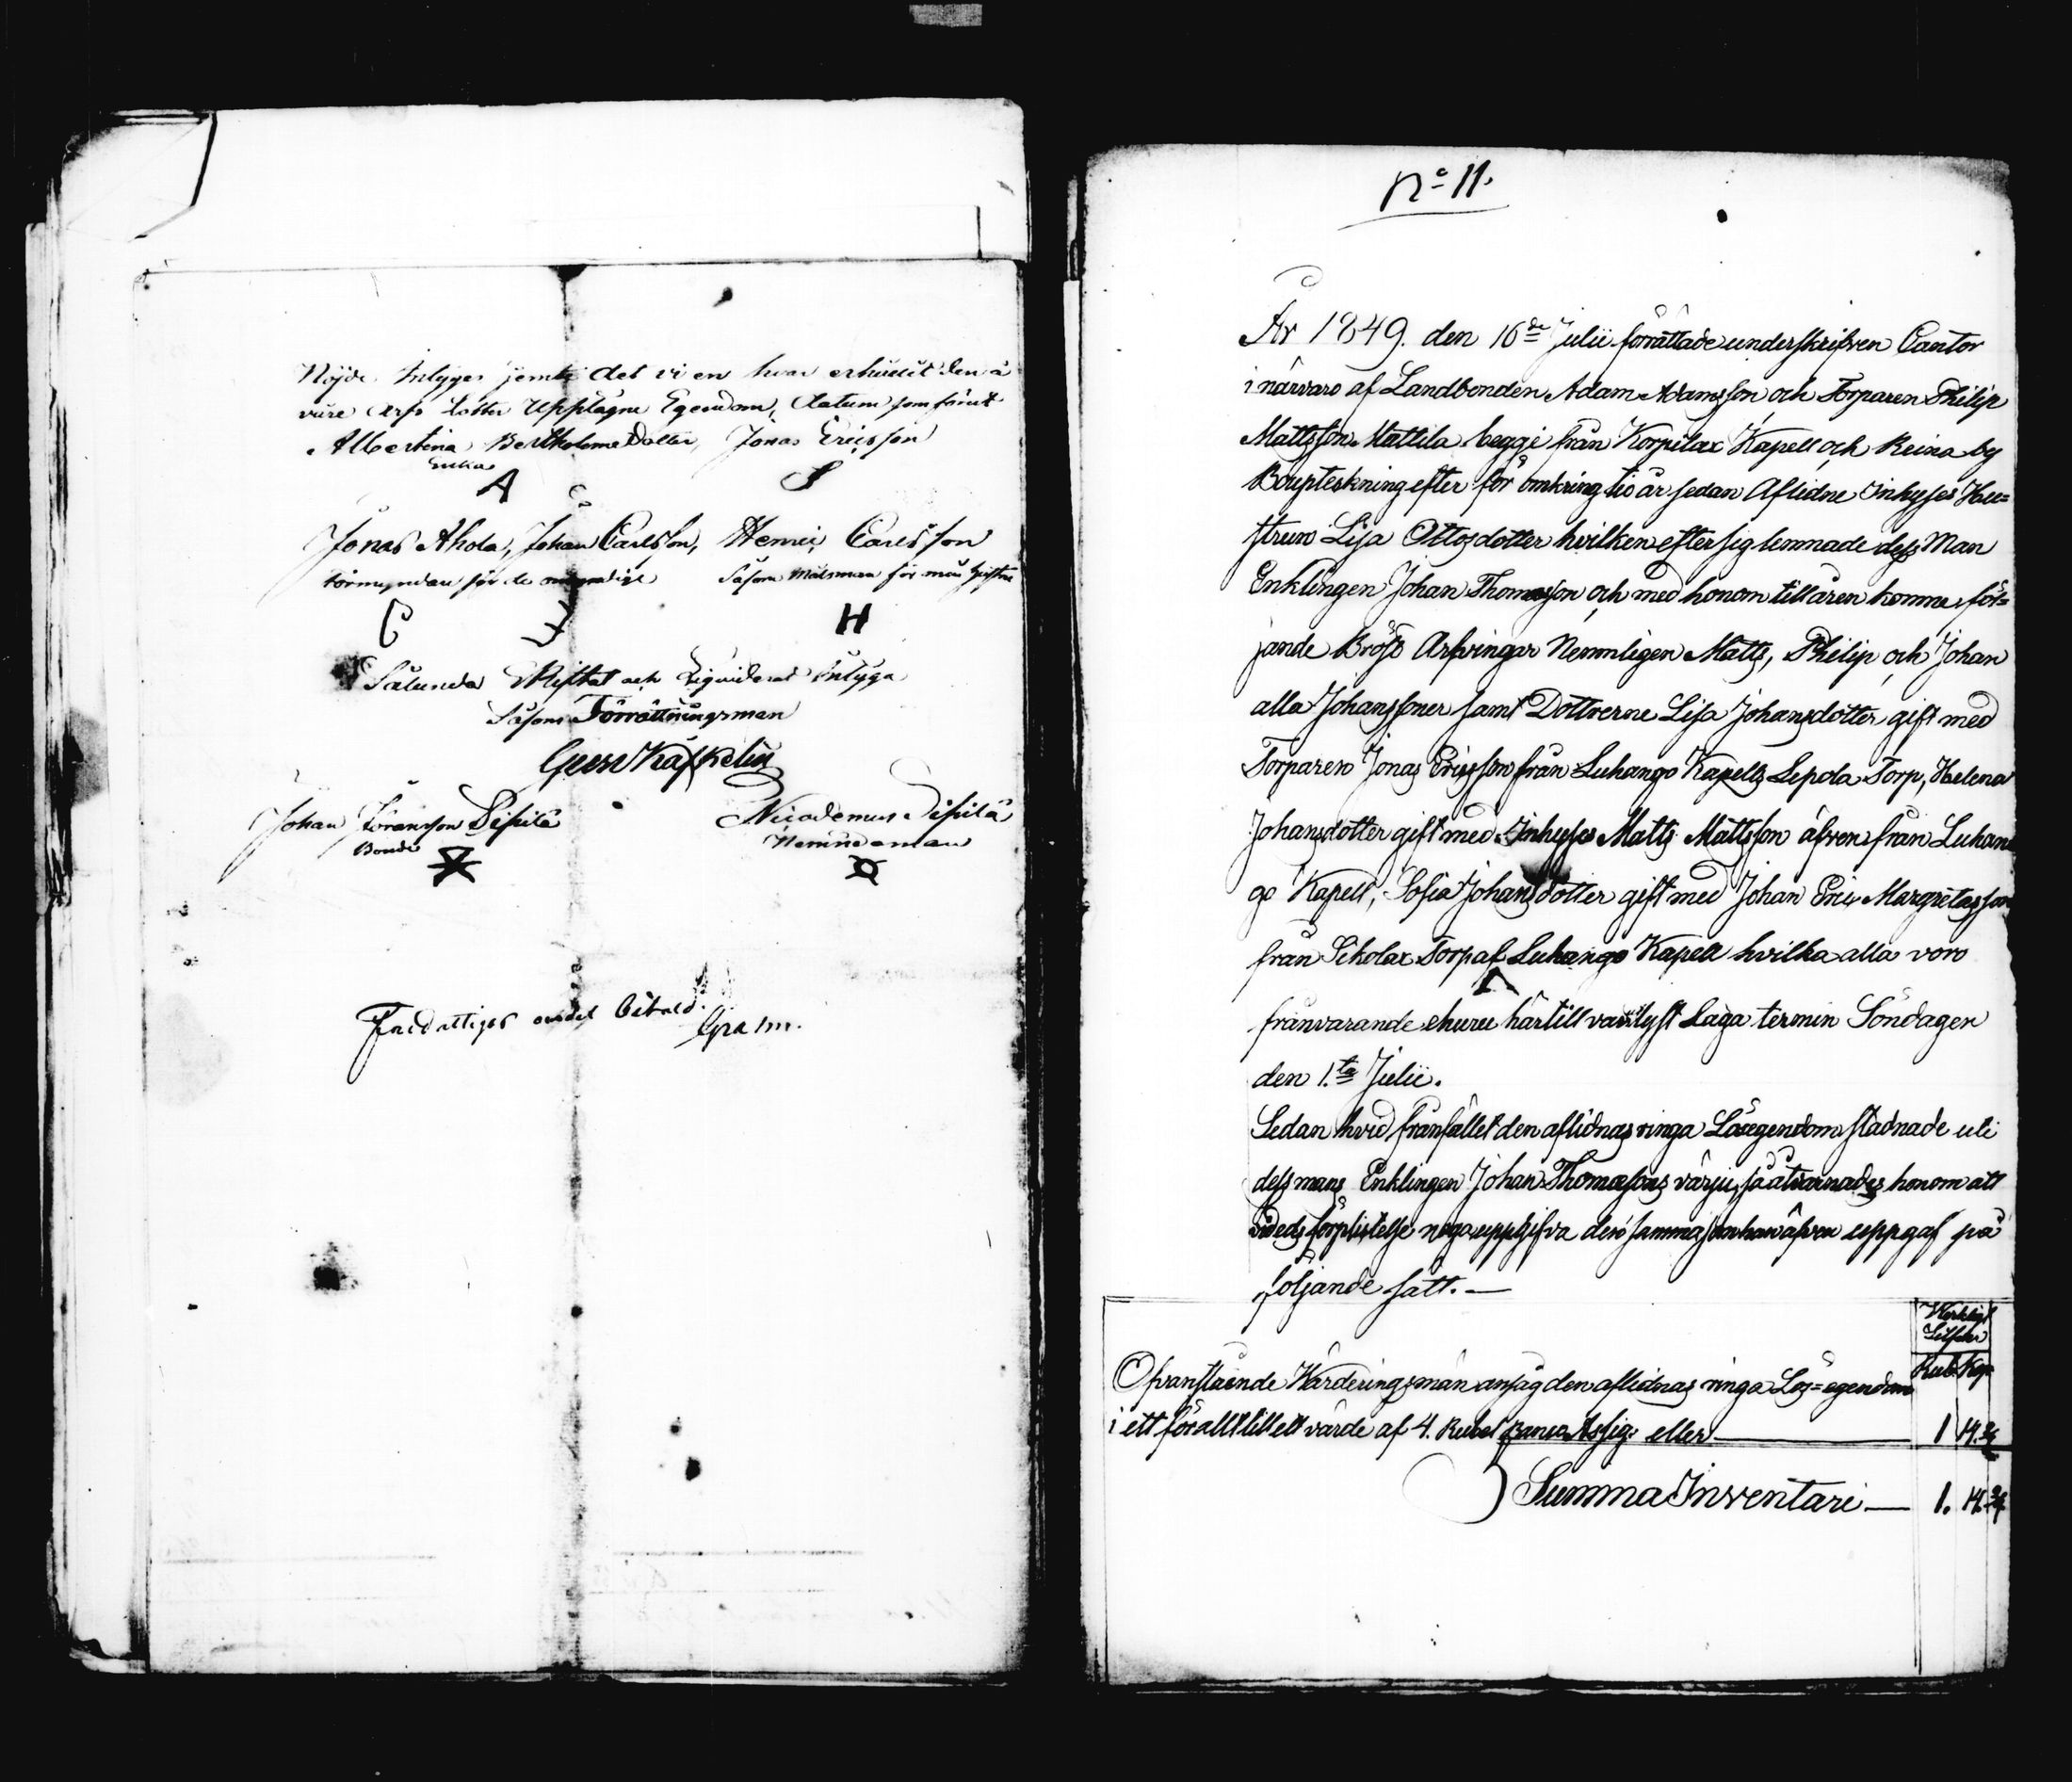 Nöjde Intyges jemte det vi en hvar erhållit den å
våre arfs lotter upptagne Egendom, datum som förut
Albertina Bertholomei Dotter, Jonas Ericsson
Enka
A
Jonas Ahola, Johan Carlsson, Henric Carlsson
Förmyndare för de omyndige Såsom Målsman för min hustru
C J H
Sålunda Skiftat och Liquiderat Intyga
Såsom Förrättningsman
Johan Göransson Sipilä Nicodemus Sipilä
Bonde Nämndeman
Fattiges andel betald.
Gra m.
No 11.
År 1849. den 16de Julii förrättade underskrifven Cantor
i närvaro af Landbonden Adam Adamsson och Torparen Philip
Mattsson Mattila begge från Korpilax Kapell och Reina by
Bouptekning efter för omkring tio år sedan Aflidne Inhyses Hu=
strun Lisa Ottosdotter hvilken efter sig lemnade dess Man
Enklingen Johan Thomasson och med honom till åren komne föl=
jande Bröst Arfvingar Nemnligen Matts, Philip och Johan
alla Johanssoner samt Dottrerne Lisa Johansdotter gift med
Torparen Jonas Ericsson från Luhango Kapells Lepola Torp, Helena
Johansdotter gift med Inhyses Matts Mattsson äfven från Luhan
go Kapell, Sofia Johansdotter gift med Johan Eric Margretasson
från Sikolax Torp af Luhango Kapell hvilka alla voro
frånvarande ehuru härtill var utlyst Laga termin Söndagen
den 1.ta Julii.
Sedan hvid frånfället den aflidnas ringa Lösegendom stadnade uti
dess mans Enklingen Johan Thomasons värju, så åtvarnades honom att
vid eds förpliktelse noga uppgifva den samma som han äfven uppgaf på
följande sätt. —
Silfver
Rub. Kop.
Ofvanstående Wärderingsmän ansåg den aflidnas ringa Lös=egendom
i ett för allt till ett värde af 4. Rubel Banco Assig: eller 1 14.2/7
Summa Inventari — 1. 14.2/7